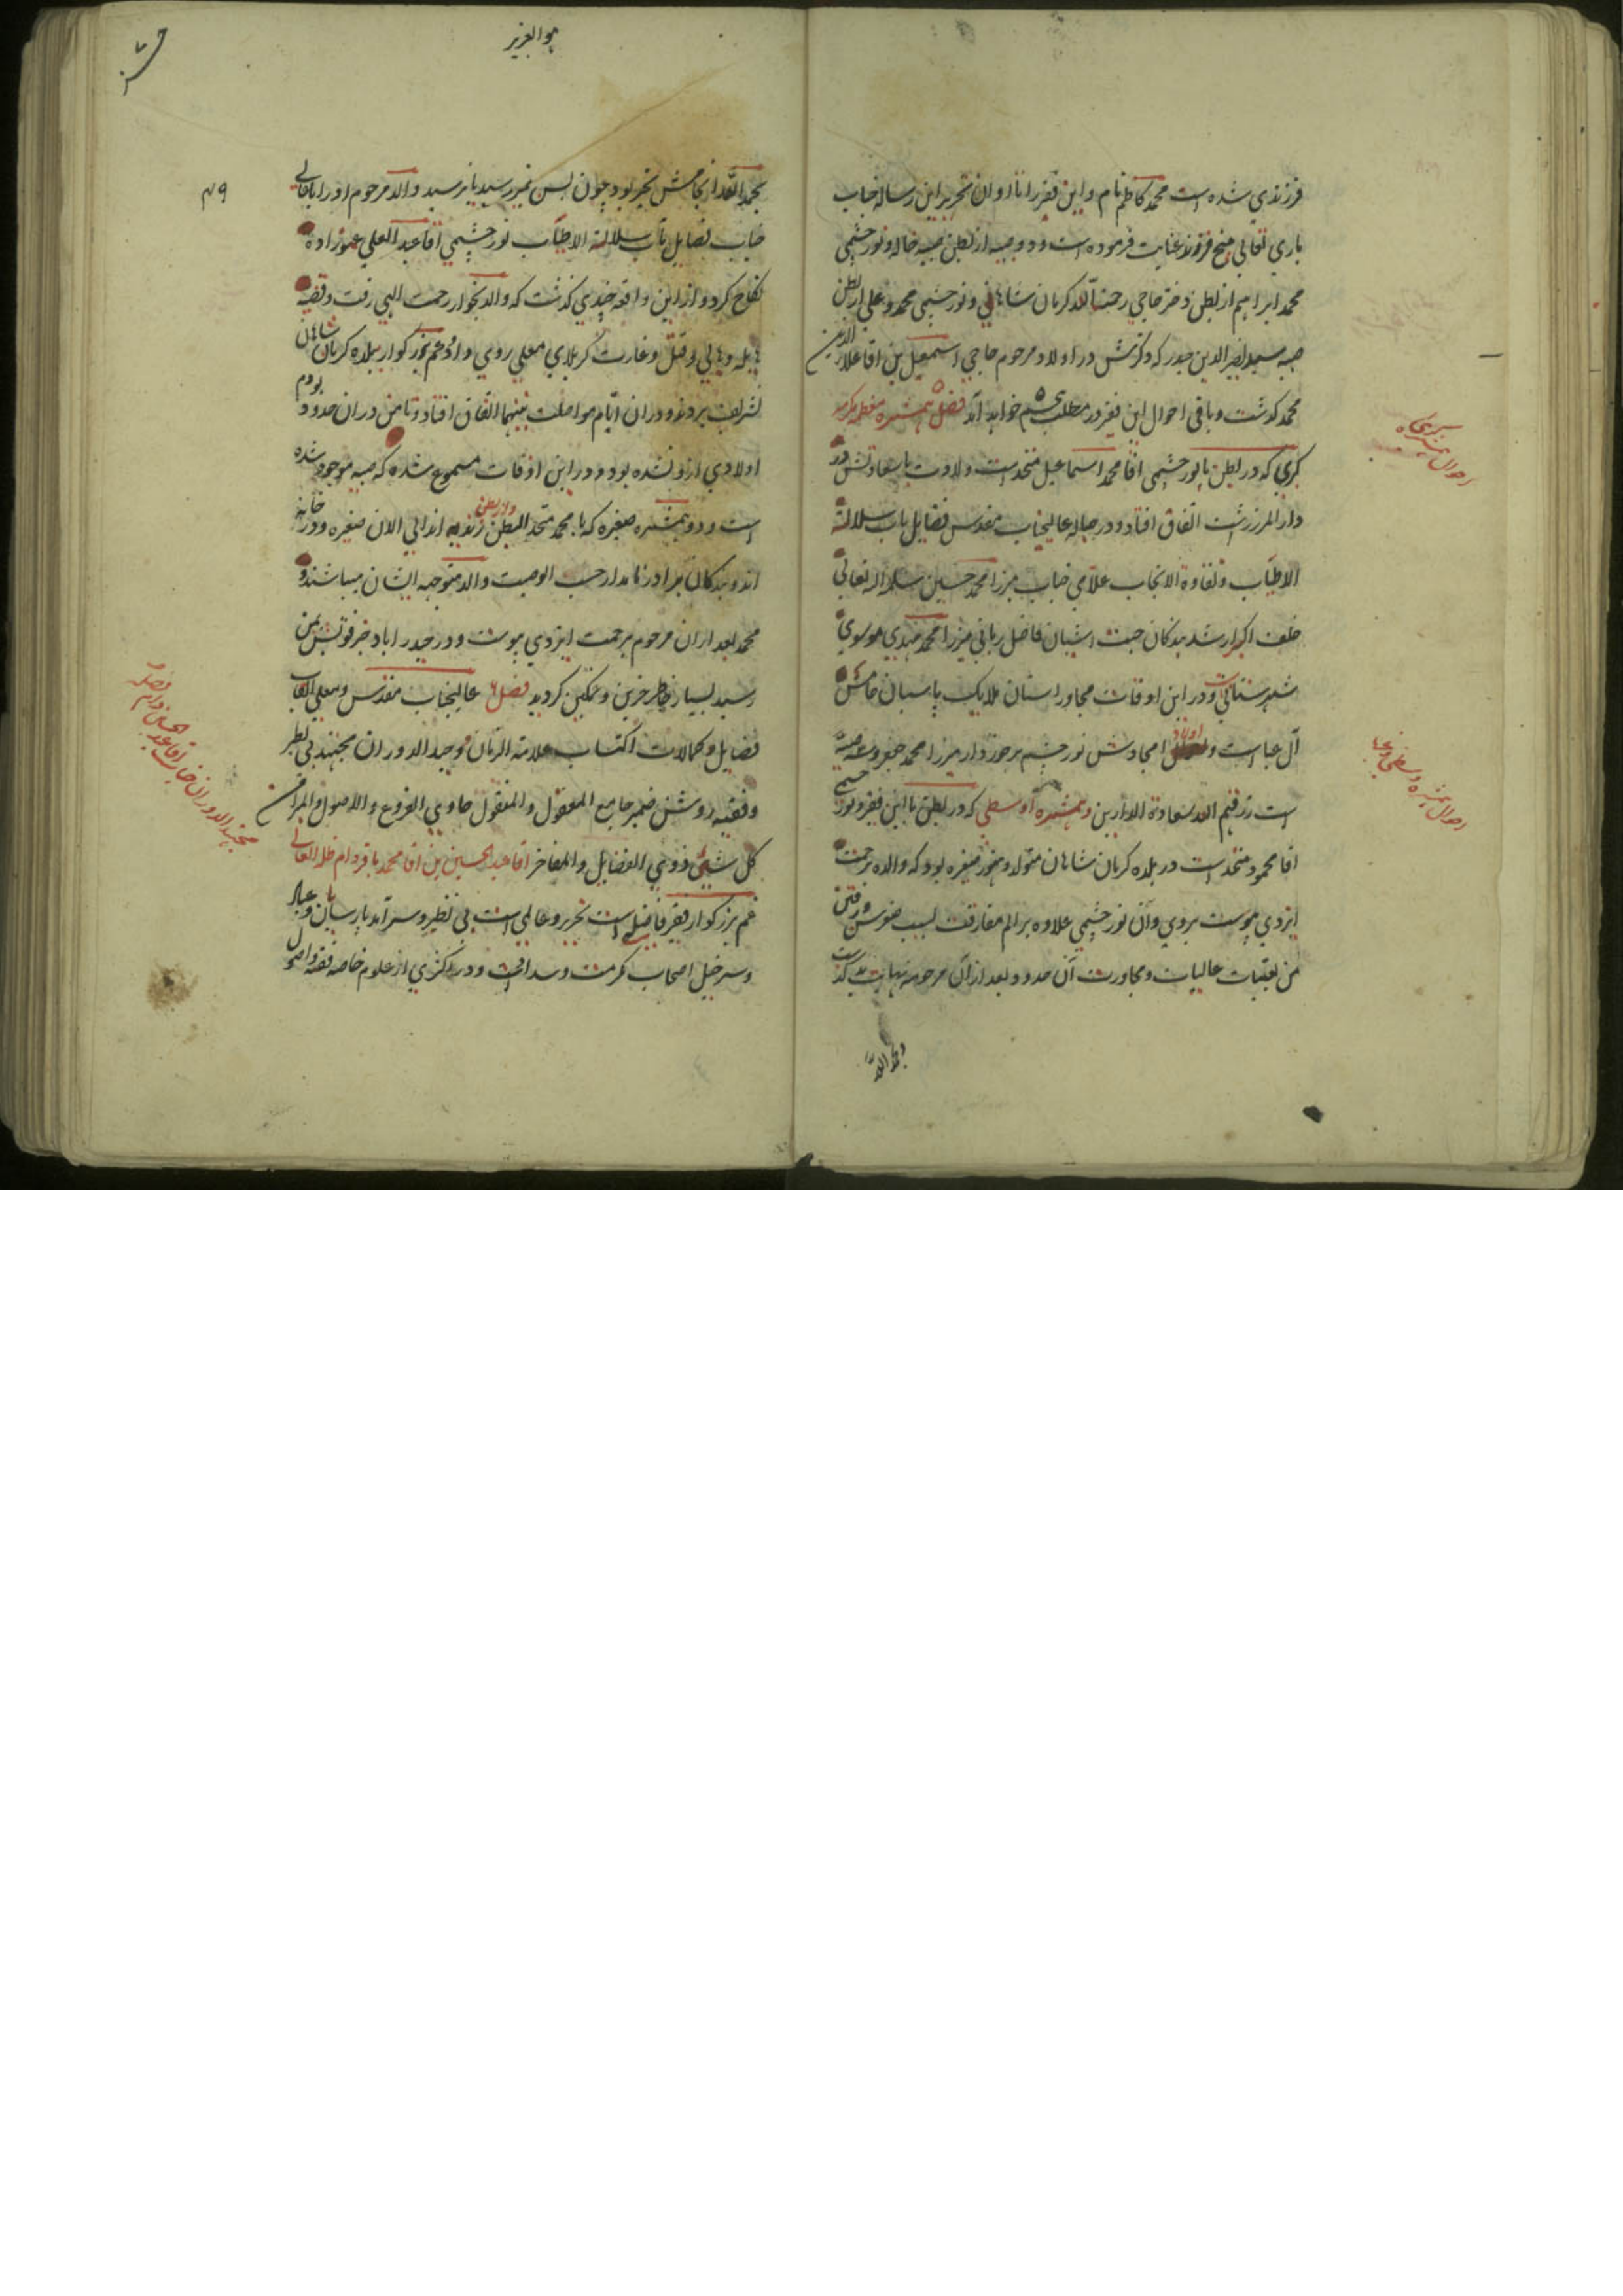 فرزندی شده است محمد کاظم نام و این فقیر را تا اوان تحریر این رساله جناب
باری تعالی پنج فرزند عنایت فرموده است و دو صبیه از بطن صبیه خاله و نورچشمی
محمد ابراهیم از بطن دختر حاجی رحمت الله کرمان شاهانی و نورچشمی محمد و علی از بطن
صبیه سید نصیر الدین حیدر که ذکرش در اولاد مرحوم حاجی اسمعیل بن اقا علاء الدین
محمد گذشت و باقی احوال این فقیر در مطلب پنجم خواهد آمد فصل ۵ همشیره معظمه مکرمه
کبری که در بطن با نورچشمی اقا محمد اسماعیل متحد است ولادت باسعادتش در
دار المرز رشت اتفاق افتاد و در حباله عالیجناب مقدس فضایل مآب سلالة
الاطیاب و نقاوة الانجاب علامی جناب میرزا محمد حسین سلمه الله تعالی
خلف اکبر ارشد بندکان جنت اشیان فاضل ربانی میرزا محمد مهدی موسوی
شهرستانی است و در این اوقات مجاور استان ملایک پاسبان خامس
آل عبا است و اولاد امجادش نورچشم برخوردار میرزا محمد جعفر و سه صبیه
است رزقهم الله سعادة الدارین و همشیره اوسطی که در بطن با این فقیر و نورچشمی
اقا محمود متحد است در بلده کرمان شاهان متولد و هنوز صغیره بود که والده برحمت
ایزدی پیوست بروی و آن نورچشمی علاوه بر الم مفارقت بسبب و رفتن
من بعتبات عالیات و مجاورت آن حدود بعد از آن مرحومه نهایت بد گذشت
احوال همشیره کبری
احوال همشیره وسطی و صغری
هو العزیز
۴۹
بحمد الله انجامش بخیر بود چون بسن تمیز رسید یا نرسید والد مرحوم او را با عالی
جناب فضایل مآب سلالة الاطیاب نورچشمی اقا عبد العلی عموزاده
نکاح کرد و از این واقعه چندی گذشت که والد بجوار رحمت الهی رفت و قضیه
هایله وهابی و قتل و غارت کربلای معلی روی داد و عم بزرگوار ببلده کرمان شاهان
تشریف بردند و در ان ایام مواصلت بینهما اتفاق افتاد و تا من در ان حدود بودم
اولادی از و نشده بود و در این اوقات مسموع شده که صبیه موجود شده
است و دو همشیره صغیره که با محمد متحد البطن و از بطن زندیه اند الی الان صغیره و در خانه
اند و بندکان برادر نامدار حسب الوصیت والد متوجه ایشان میباشند و
محمد بعد از ان مرحوم برحمت ایزدی پیوست و در حیدر اباد خبر فوتش بمن
رسید بسیار خاطر حزین و غمگین گردید فصل ۶ عالیجناب مقدس و معلی القاب
فضایل و کمالات اکتساب علامة الزمان و وحید الدوران مجتهد بی نظیر
و فقیه روشن ضمیر جامع المعقول و المنقول حاوی الفروع و الاصول
کل شیء ذوی الفضایل و المفاخر اقا عبد الحسین بن اقا محمد باقر دام ظله العالی
عم بزرگوار فقیر فاضلی است نحریر و عالمی است بی نظیر و سرآمد پارسایان و عباد
و سرخیل اصحاب کرامت و سداد است و در اکثری از علوم خاصه فقه و اصول
مجتهد الدوران جناب اقا عبد الحسین دام فضله